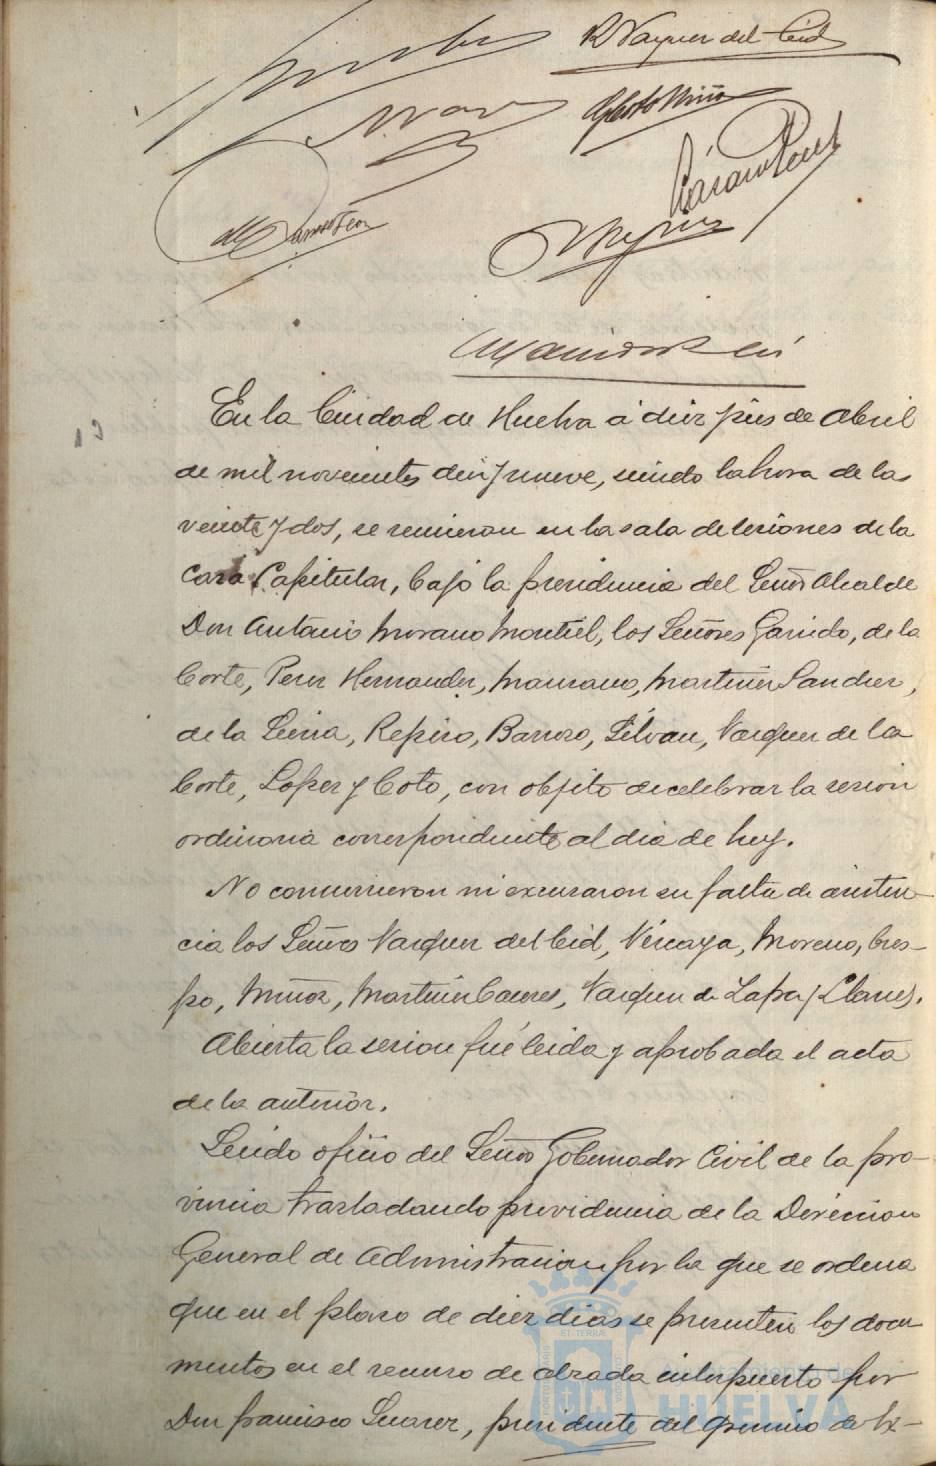 R Vazquez del Cid
En la Ciudad de Huelva á diez y seis de Abril
de mil novecientos diez y nueve, siendo la hora de las
veinte y dos, se reunieron en la sala de sesiones de la
Casa Capitular, bajo la presidencia del Señor Alcalde
Don Antonio Morano Montiel, los Señores Garrido, de la
Corte, Perez Hernandez, Manzano, Martin Sanchez,
de la Sierra, Repiso, Barroso, Silvan, Vazquez de la
Corte, Lopez y Coto, con objeto de celebrar la sesion
ordinaria correspondiente al dia de hoy.
No concurrieron ni excusaron su falta de asisten-
cia los Señores Vazquez del Cid, Vizcaya, Moreno, Cres-
po, Muñoz, Martin Caceres, Vazquez de Zafra y Llanes.
Abierta la sesion fué leida y aprobada el acta
de la anterior.
Leido oficio del Señor Gobernador Civil de la pro-
vincia trasladando providencia de la Direccion
General de Administracion por la que se ordena
que en el plazo de diez dias se presenten los docu
mentos en el recurso de alzada interpuesto por
Don Francisco Suarez, presidente del Gremio de Ex-
Ayuntamiento de
HUELVA